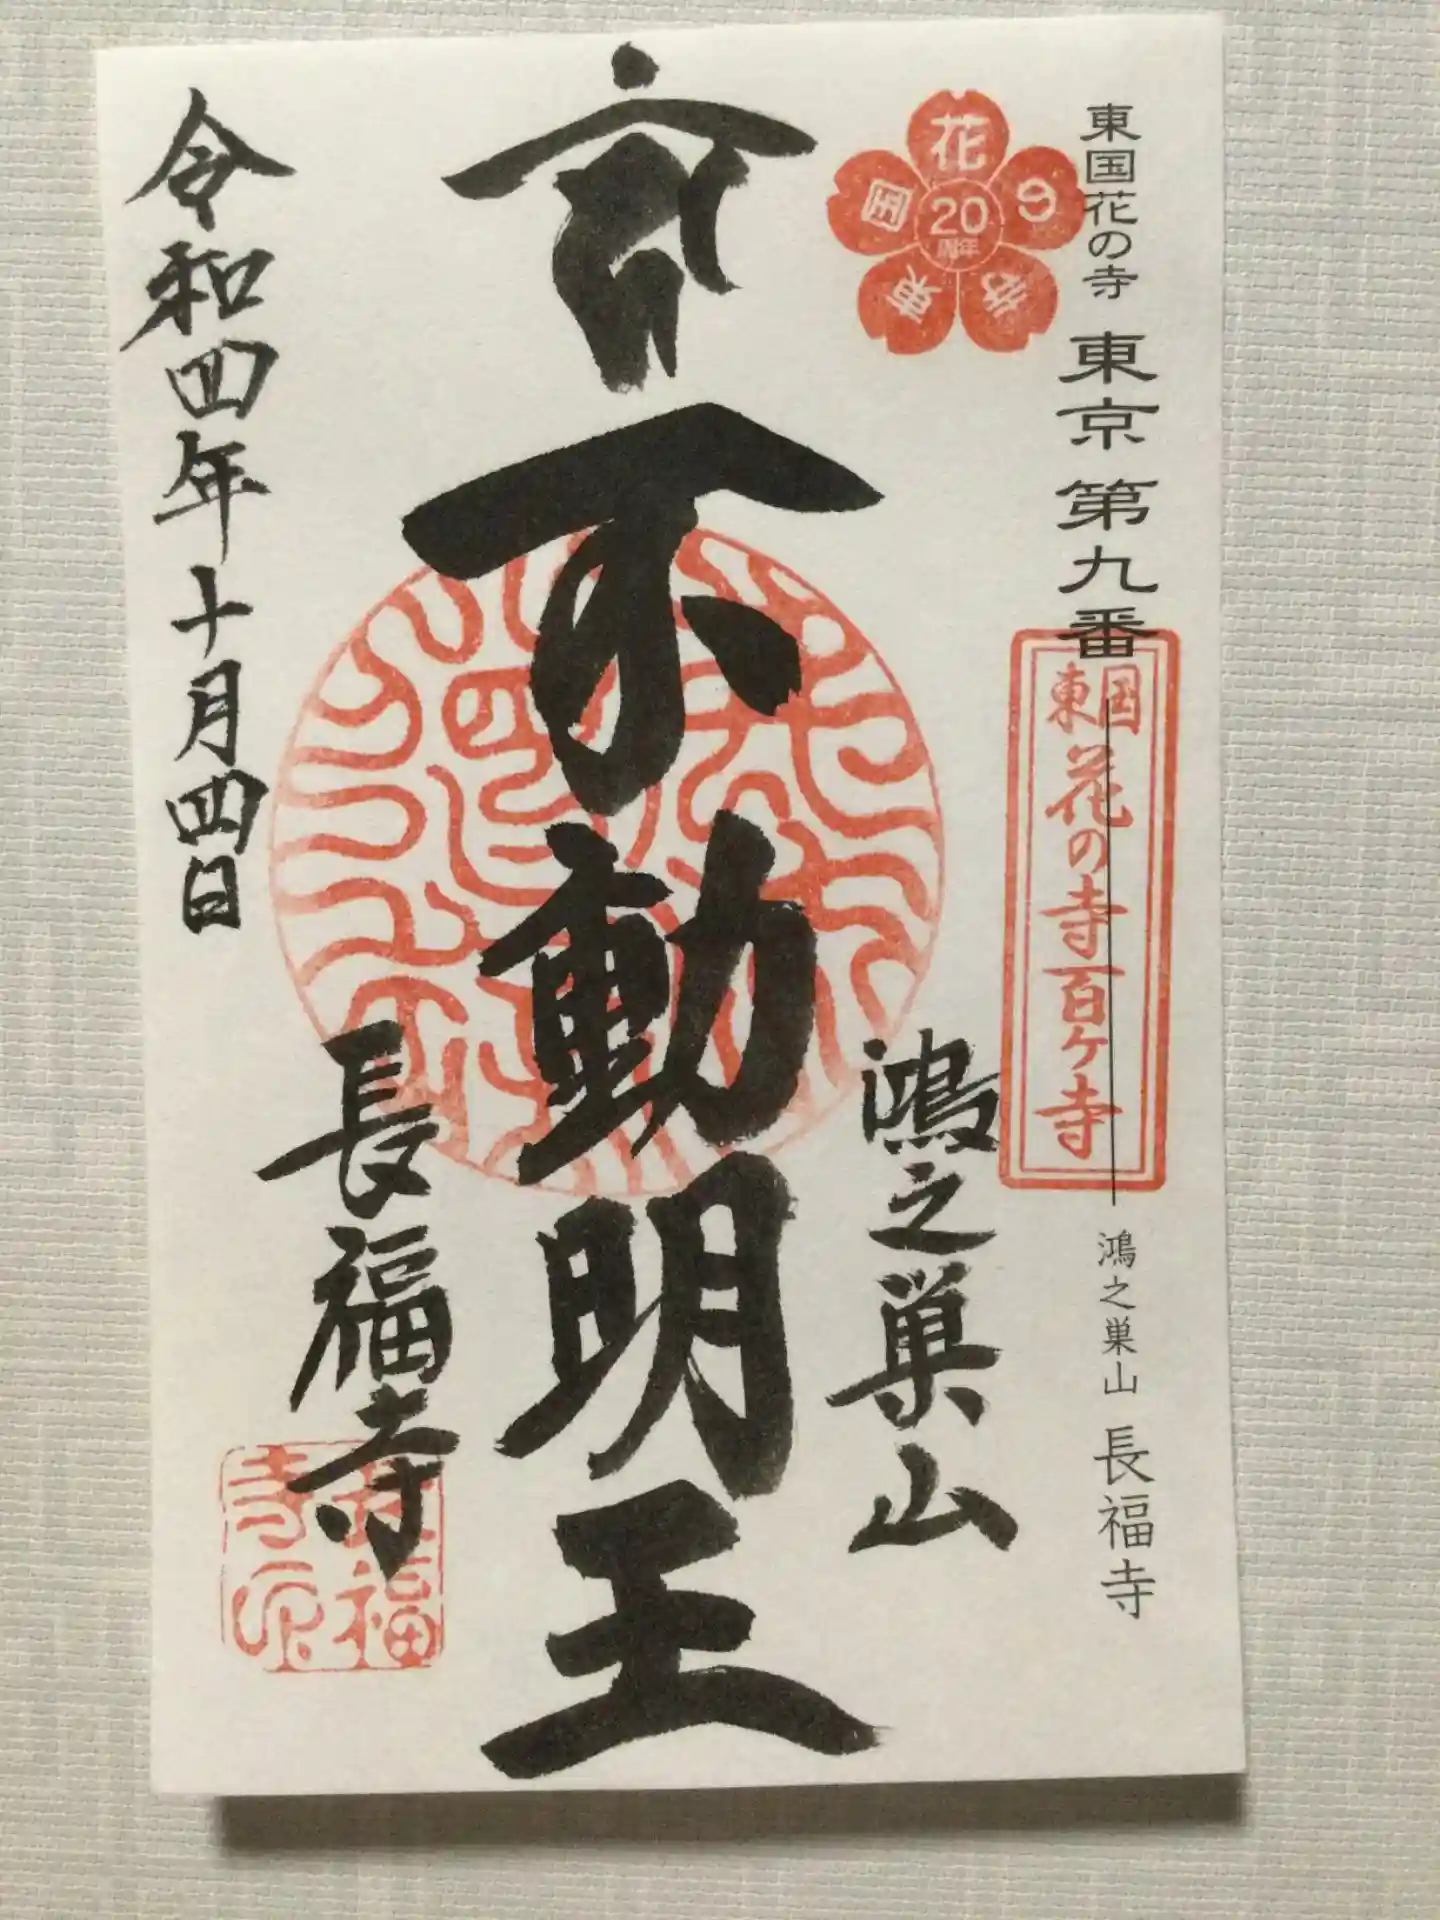 東国花の寺 東京 第九番
鴻之巣山 長福寺
東国花の寺百ヶ寺
東国花の寺
20
周年
鴻之巣山
不動明王
長福寺
令和四年十月四日